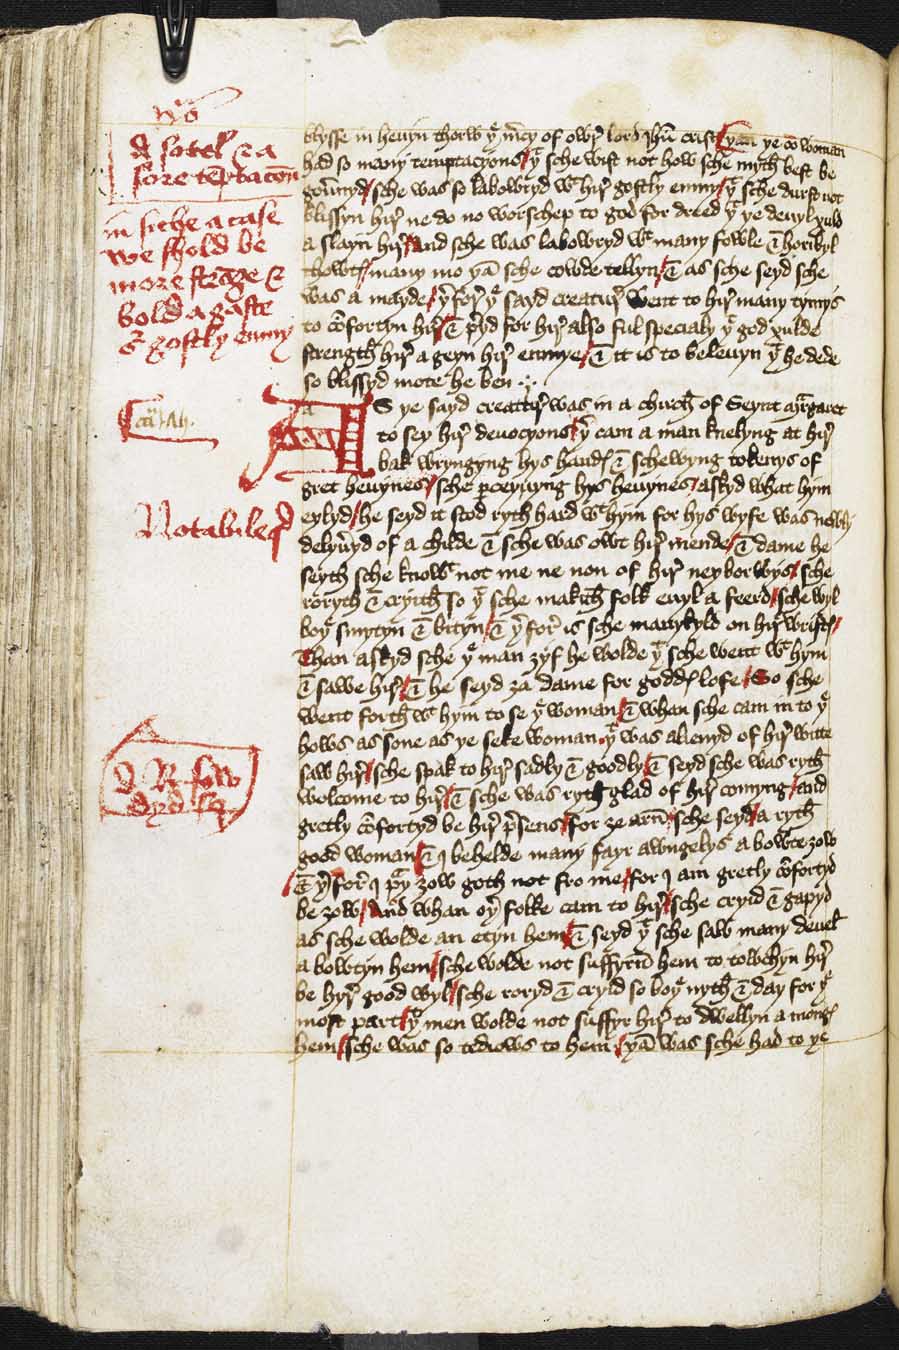 nota
A sotel & a
sore tēptacōn
in siche a case
we shold be
more strāge &
bold a gaste
oʳ gostly enmy
blysse in hevyn thorw yͤ m̄cy of owr̛ lord Jhū crist / yan ye cō woman
had so many temptacyons / yᵗ sche wist not how sche myth best be
gou̔nyd / sche was so labowryd wᵗ hir̛ gostly enmy / yᵗ sche durst not
blissyn hir̛ ne do no worschep to god for dreed yᵗ ye deuyl xuld
a slayn hir̛ / And sche was labowryd wᵗ many fowle & horibyl
thowtꝭ / many mo yā sche cowde tellyn / & as sche seyd sche
was a mayde / yʳfor̛ yͤ sayd creatur̛ went to hir̛ many tymys
to cōfortyn hir̛ / & p̄yd for hir̛ also ful specialy yᵗ god xulde
strength̄ hir̛ a geyn hir̛ enmye / & it is to beleuyn yᵗ he dede
so blissyd mote he ben
AS ye sayd creatur̛ was in a church̄ of Seynt Mʳgaret
to sey hir̛ deuocyons / yʳ cam a man knelyng at hir̛
bak wryngyng hys handꝭ & schewyng tokenys of
gret heuynes / sche ꝑceyuyng hys heuynes / askyd what hym
Notabile
eylyd / he seyd it stod ryth hard wᵗ hym for hys wyfe was newly
delyu̔yd of a childe & sche was owt hir̛ mende / & dame he
seyth sche knowᵗ not me ne non of hir̛ neyborwys / sche
roryth & cryith̄ so yᵗ sche makith̄ folk euyl a feerd / sche wyl
boyᵗ smytyn & bityn / & yʳfor̛ is sche manykyld on hir̛ wristꝭ /
Than askyd sche yͤ man ȝyf he wolde yᵗ sche went wᵗ hym
& sawe hir̛ / & he seyd ȝa dame for goddꝭ lofe / So sche
went forth̄ wᵗ hym to se yͤ woman / & whan sche cam in to yͤ
hows as sone as ye seke woman yᵗ was alienyd of hir̛ witte
saw hir̛ / sche spak to hir̛ sadly & goodly / & seyd sche was ryth̄
welcome to hir̛ / & sche was ryth̄ glad of hir̛ comyng / and
gretly cōfortyd be hir̛ p̄sens / for ȝe arn̄ sche seyd / a ryth̄
good woman / & I behelde many fayr awngelys a bowte ȝow
& yʳfor̛ I pʳy ȝow goth not fro me / for I am gretly cōfortyd
be ȝow / And whan oyʳ folke cam to hir̛ / sche cryid & gapyd
as sche wolde an etyn hem / & seyd yᵗ sche saw many deuelꝭ
a bowtyn hem / sche wolde not suffyrin hem to towchyn hir̛
be hyr̛ good wyl / sche roryd & cryid so boyᵗ nyth̄ & day for yͤ
most part / yᵗ men wolde not suffyr hir̛ to dwellyn a mongꝭ
hem / sche was so tediows to hem / yā was sche had to ye